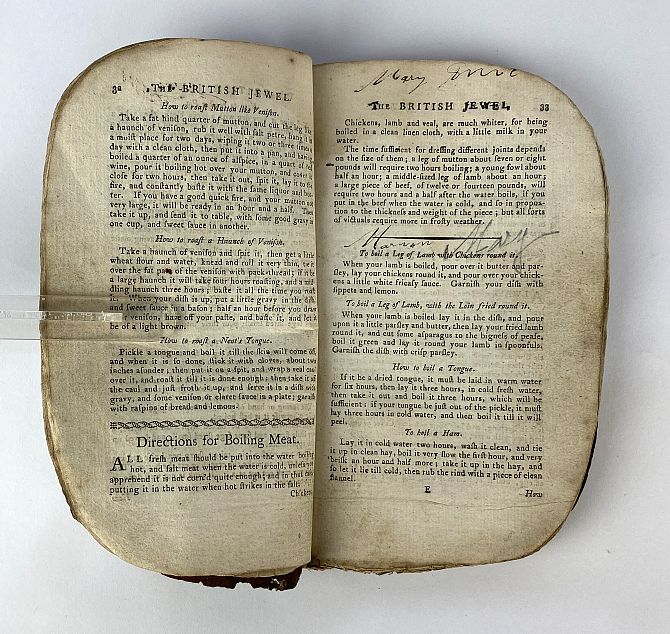 32 THE BRITISH JEWEL.
How to roaſt Mutton like Veniſon.
Take a fat hind quarter of mutton, and cut the leg like
a haunch of veniſon, rub it well with ſalt petre, hang it in
a moiſt place for two days, wiping it two or three times a
day with a clean cloth, then put it into a pan, and having
boiled a quarter of an ounce of allſpice, in a quart of red
wine, pour it boiling hot over your mutton, and cover it
cloſe for two hours, then take it out, ſpit it, lay it to the
fire, and conſtantly baſte it with the ſame liquor and but-
ter. If you have a good quick fire, and your mutton not
very large, it will be ready in an hour and a half. Then
take it up, and ſend it to table, with ſome good gravy in
one cup, and ſweet ſauce in another.
How to roaſt a Haunch of Veniſon.
Take a haunch of veniſon and ſpit it, then get a little
wheat flour and water, knead and roll it very thin, tie it
over the fat part of the veniſon with packthread; if it be
a large haunch it will take four hours roaſting, and a mid-
dling haunch three hours; baſte it all the time you roaſt
it. When your diſh is up, put a little gravy in the diſh
and ſweet ſauce in a baſon; half an hour before you draw
veniſon, take off your paſte, and baſte it, and let it
be of a light brown.
How to roaſt a Neat's Tongue.
Pickle a tongue and boil it till the ſkin will come off,
and when it is ſo done, ſtick it with cloves, about two
inches aſunder; then put it on a ſpit, and wrap a veal caul
over it, and roaſt it till it is done enough; then take off
the caul and juſt froth it up, and ſerve it in a diſh with
gravy, and ſome veniſon or claret ſauce in a plate; garniſh
with raſpins of bread and lemons.
Directions for Boiling Meat.
ALL freſh meat ſhould be put into the water boiling
hot, and ſalt meat when the water is cold, unleſs you
apprehend it is not corn'd quite enough; and in that caſe
putting it in the water when hot ſtrikes in the ſalt.
Chickens
Mary
THE BRITISH JEWEL. 33
Chickens, lamb and veal, are much whiter, for being
boiled in a clean linen cloth, with a little milk in your
water.
The time ſufficient for dreſſing different joints depends
on the ſize of them; a leg of mutton about ſeven or eight
pounds will require two hours boiling; a young fowl about
half an hour; a middle-ſized leg of lamb about an hour;
a large piece of beef, of twelve or fourteen pounds, will
require two hours and a half after the water boils, if you
put in the beef when the water is cold, and ſo in propor-
tion to the thickneſs and weight of the piece; but all ſorts
of victuals require more in froſty weather.
Mary
To boil a Leg of Lamb with Chickens round it.
When your lamb is boiled, pour over it butter and par-
ſley, lay your chickens round it, and pour over your chick-
ens a little white fricaſy ſauce. Garniſh your diſh with
ſippets and lemon.
To boil a Leg of Lamb, with the Loin fried round it.
When your lamb is boiled lay it in the diſh, and pour
upon it a little parſley and butter, then lay your fried lamb
round it, and cut ſome aſparagus to the bigneſs of peaſe,
boil it green and lay it round your lamb in ſpoonfuls.
Garniſh the diſh with criſp parſley.
How to boil a Tongue.
If it be a dried tongue, it muſt be laid in warm water
for ſix hours, then lay it three hours, in cold freſh water,
then take it out and boil it three hours, which will be
ſufficient: if your tongue be juſt out of the pickle, it muſt
lay three hours in cold water, and then boil it till it will
peel.
To boil a Ham.
Lay it in cold water two hours, waſh it clean, and tie
it up in clean hay, boil it very ſlow the firſt hour, and very
briſk an hour and half more; take it up in the hay, and
ſo let it lie till cold, then rub the rind with a piece of clean
flannel.
E
How